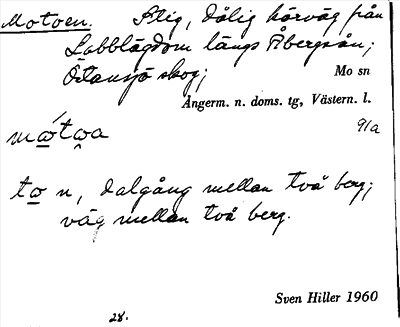 Motoen. Stig, dålig körväg från
Lobblägdom längs Åbergsån;
Ötansjö skog;
Mo sn
Ångerm. n. doms. tg, Västern. l.
91a
to n, dalgång mellan två berg;
väg mellan två berg.
Sven Hiller 1960
28.